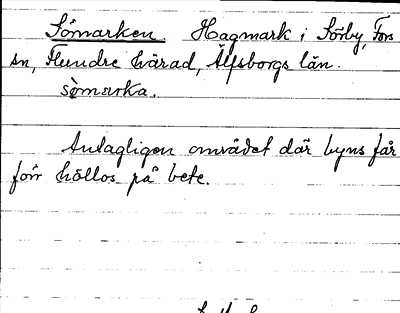 Sömarken. Hagmark i Sörby, Fors
sn, Flundre härad, Älfsborgs län.
sömarka.
Antagligen området där byns får
förr höllos på bete.